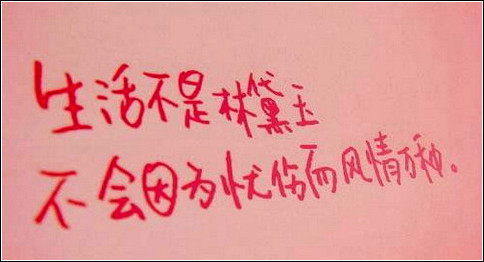 生活不是林黛玉
不会因为忧伤而风情万种。